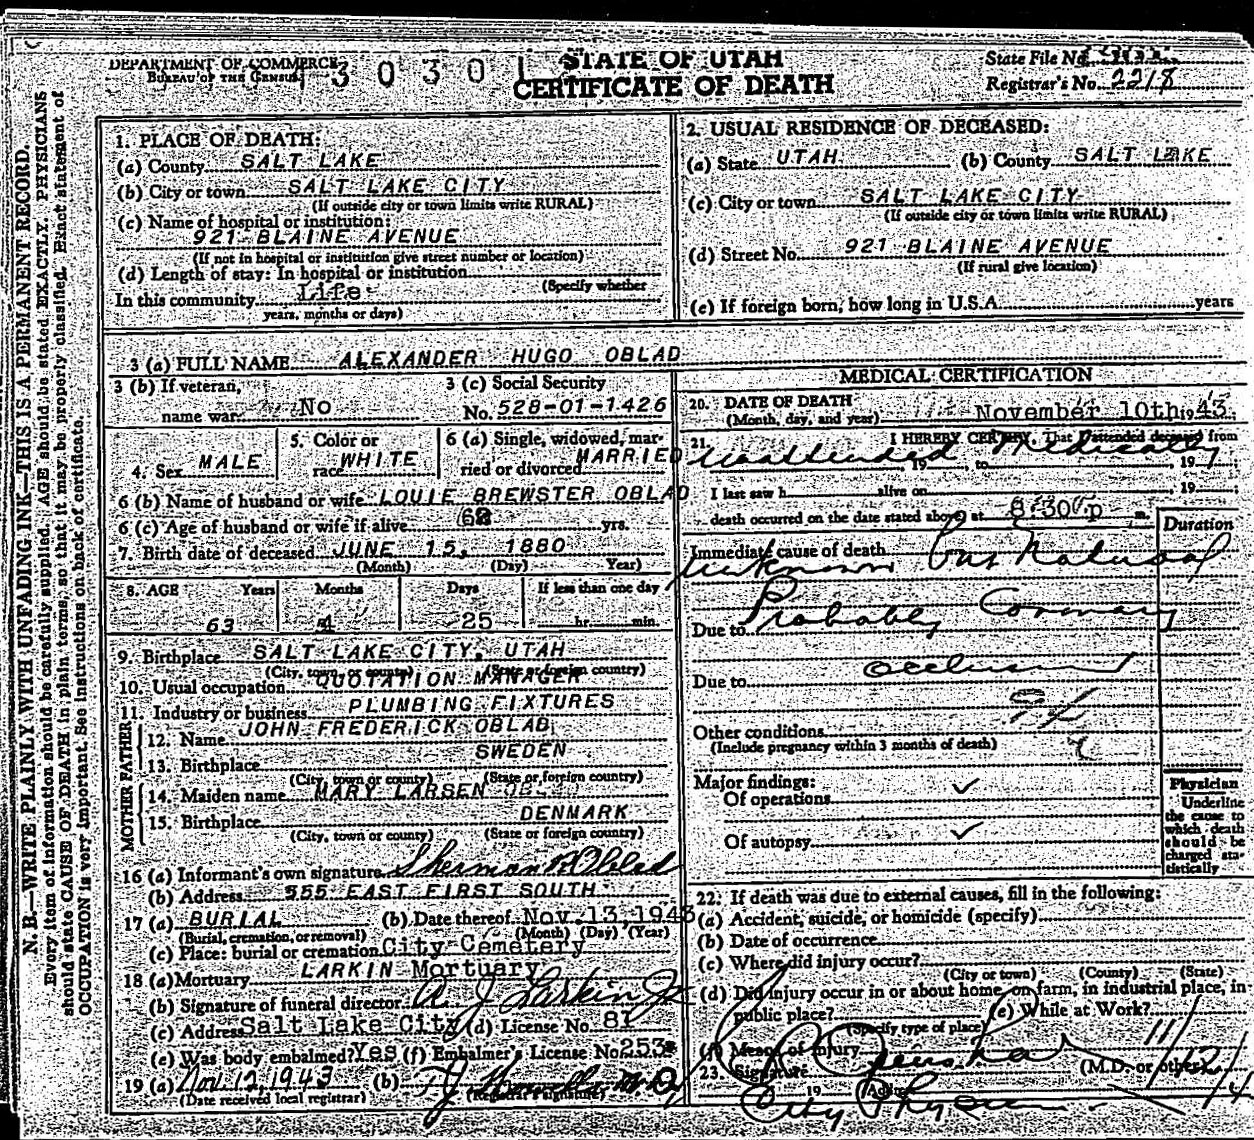 DEPARTMENT OF COMMERCE
BUREAU OF THE CENSUS
3 0 3 0 1
STATE OF UTAH
CERTIFICATE OF DEATH
State File No.
Registrar's No. 2218
N. B.—WRITE PLAINLY WITH UNFADING INK—THIS IS A PERMANENT RECORD.
Every item of information should be carefully supplied. AGE should be stated EXACTLY. PHYSICIANS
should state CAUSE OF DEATH in plain terms, so that it may be properly classified. Exact statement of
OCCUPATION is very important. See instructions on back of certificate.
1. PLACE OF DEATH:
(a) County SALT LAKE
(b) City or town SALT LAKE CITY
(If outside city or town limits write RURAL)
(c) Name of hospital or institution:
921 BLAINE AVENUE
(If not in hospital or institution give street number or location)
(d) Length of stay: In hospital or institution
(Specify whether
In this community Life
years, months or days)
2. USUAL RESIDENCE OF DECEASED:
(a) State UTAH (b) County SALT LAKE
(c) City or town SALT LAKE CITY
(If outside city or town limits write RURAL)
(d) Street No. 921 BLAINE AVENUE
(If rural give location)
(e) If foreign born, how long in U.S.A. years
3 (a) FULL NAME ALEXANDER HUGO OBLAD
3 (b) If veteran,
name war No
3 (c) Social Security
No. 528-01-1426
4. Sex MALE
5. Color or
race WHITE
6 (a) Single, widowed, mar-
ried or divorced MARRIED
6 (b) Name of husband or wife LOUIE BREWSTER OBLAD
6 (c) Age of husband or wife if alive yrs.
7. Birth date of deceased JUNE 15, 1880
(Month) (Day) Year)
8. AGE Years Months Days If less than one day
63 4 25 hr. min.
9. Birthplace SALT LAKE CITY, UTAH
(City, town or county) (State or foreign country)
10. Usual occupation QUOTATION MANAGER
11. Industry or business PLUMBING FIXTURES
FATHER
12. Name JOHN FREDERICK OBLAD
13. Birthplace SWEDEN
(City, town or county) (State or foreign country)
MOTHER
14. Maiden name MARY LARSEN
15. Birthplace DENMARK
(City, town or county) (State or foreign country)
16 (a) Informant's own signature Sherman B Oblad
(b) Address 555 EAST FIRST SOUTH
17 (a) BURIAL (b) Date thereof Nov. 13, 1943
(Burial, cremation, or removal) (Month) (Day) (Year)
(c) Place: burial or cremation City Cemetery
18 (a) Mortuary LARKIN Mortuary
(b) Signature of funeral director A J Larkin Jr
(c) Address Salt Lake City (d) License No. 81
(e) Was body embalmed? Yes (f) Embalmer's License No. 253
19 (a) Nov. 12, 1943 (b)
(Date received local registrar) (Registrar's signature)
MEDICAL CERTIFICATION
20. DATE OF DEATH
(Month, day, and year) November 10th 1943
21. I HEREBY CERTIFY, That I attended deceased from
Unattended Medically
, 19 to , 19
I last saw h alive on , 19
death occurred on the date stated above at 8:30 p m.
Duration
Immediate cause of death
Unknown but Natural
Due to Probably Coronary
Due to occlusion
Other conditions
(Include pregnancy within 3 months of death)
Major findings:
Of operations
Of autopsy
Physician
Underline
the cause to
which death
should be
charged sta-
tistically
22. If death was due to external causes, fill in the following:
(a) Accident, suicide, or homicide (specify)
(b) Date of occurrence
(c) Where did injury occur?
(City or town) (County) (State)
(d) Did injury occur in or about home, on farm, in industrial place, in
public place? (e) While at Work?
(Specify type of place)
(f) Means of injury
23. Signature (M.D. or other)
City Physician